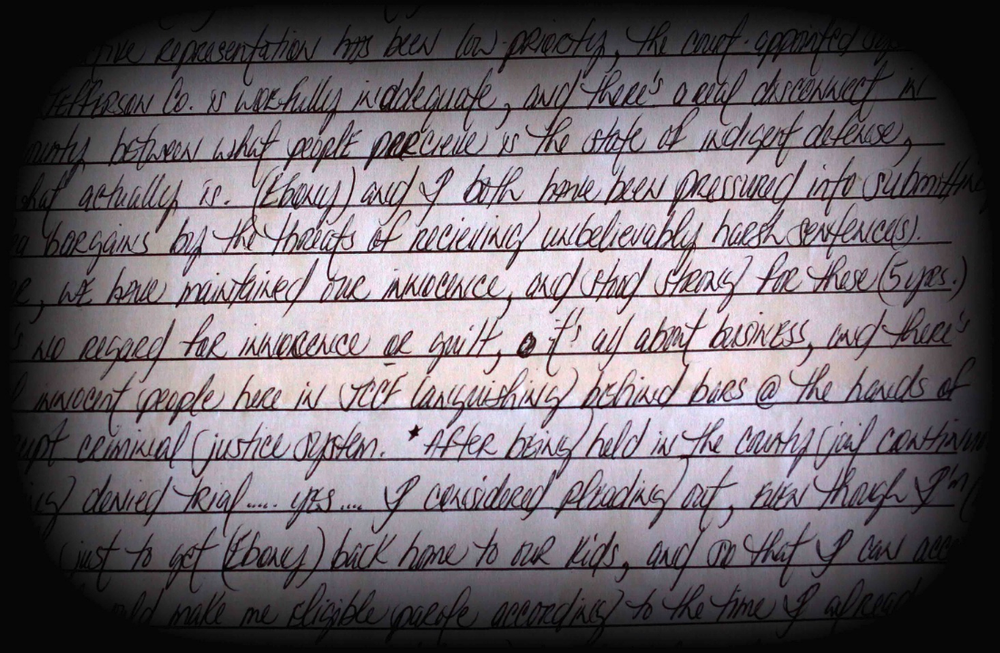 representation has been low-priority, the court-appointed
Jefferson Co. is woefully inadequate, and there's a real disconnect in
between what people percieve is the state of indigent defense,
actually is. (Ebony) and I both have been pressured into submitting
bargains by the threats of recieving unbelievably harsh sentence(s).
we have maintained our innocence, and stood strong for these (5 yrs.)
no regard for innocence or guilt, it's all about business, and there's
innocent people here in JCCF languishing behind bars @ the hands of
criminal justice system. *After being held in the county jail
denied trial.... yes.... I considered pleading out, even though I'm
just to get (Ebony) back home to our kids, and so that I can
make me eligible parole according to the time I